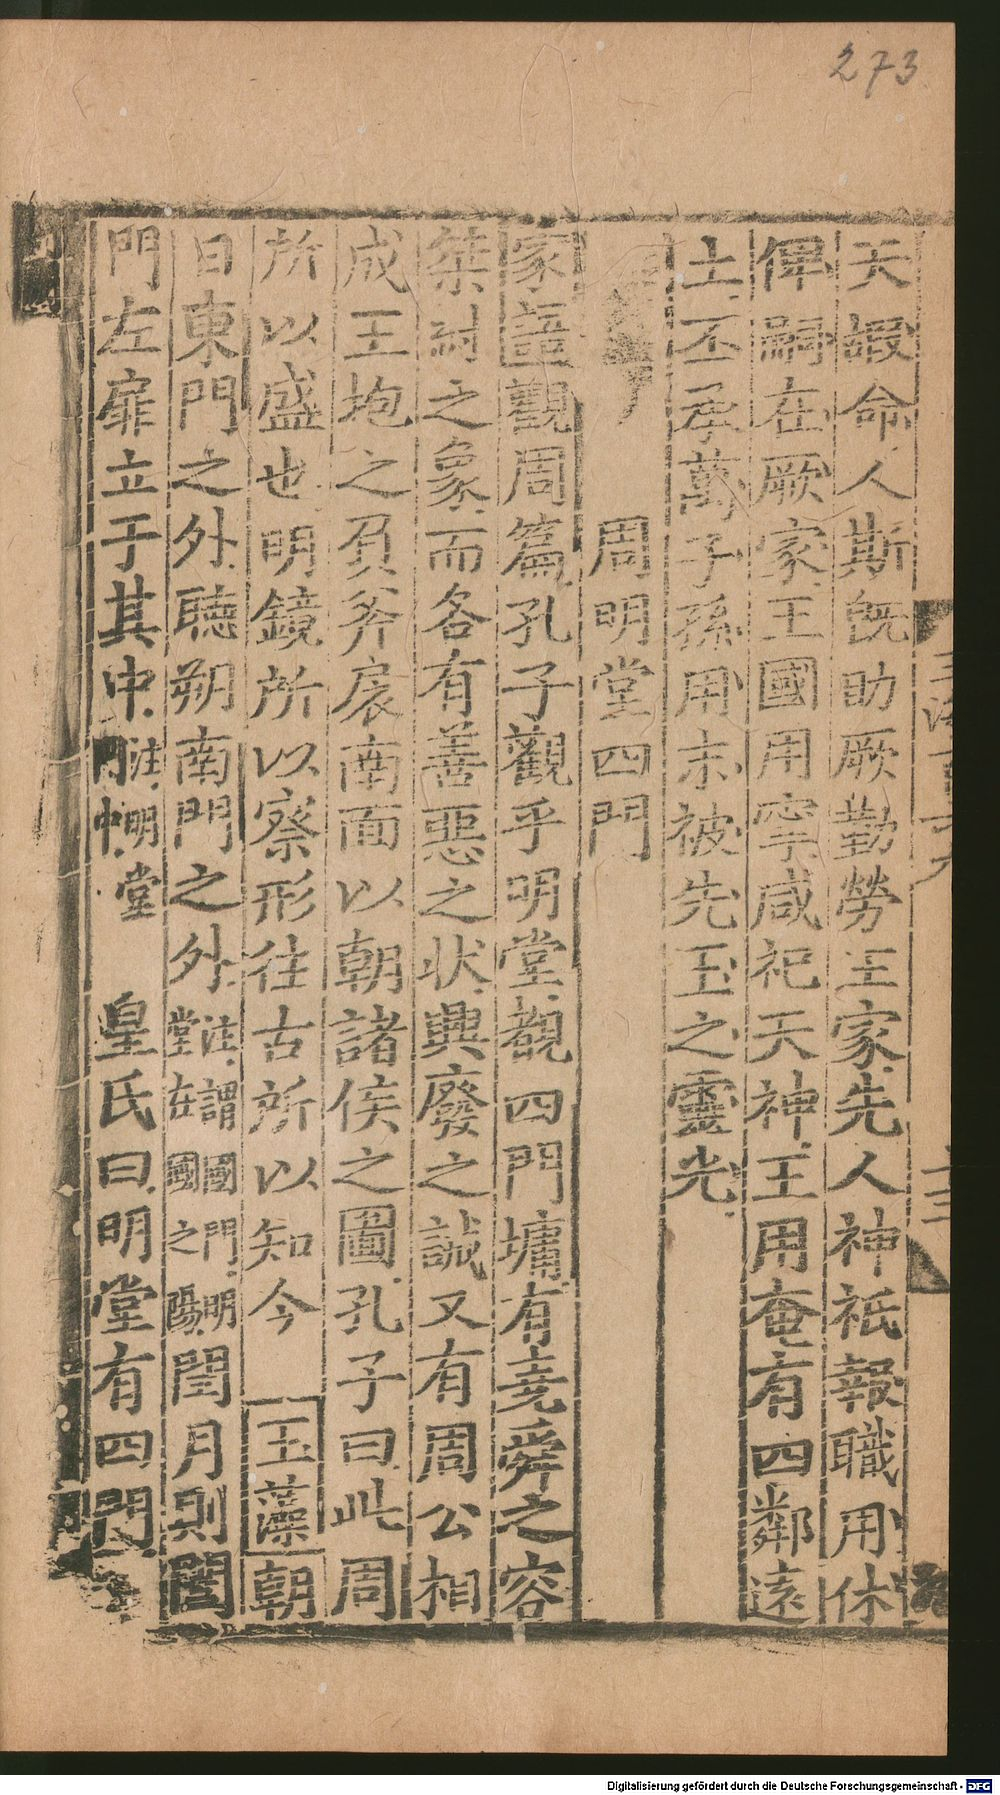 273
天嘏命人斯旣助厥勤勞王家先人神祇報職用休
俾嗣在厥家王國用寧咸祀天神王用奄有四鄰遠
土丕承萬子孫用末被先王之靈光
周明堂四門
家語觀周篇孔子觀乎明堂覩四門墉有堯舜之容
桀紂之象而各有善惡之状興廢之誡又有周公相
成王抱之負斧扆南面以朝諸侯之圖孔子曰此周
所以盛也明鏡所以察形往古所以知今 玉藻朝
日東門之外聽朔南門之外注謂國門明堂在國之陽閏月則闔
門左扉立于其中注明堂門中 皇氏曰明堂有四門
Digitalisierung gefördert durch die Deutsche Forschungsgemeinschaft - DFG